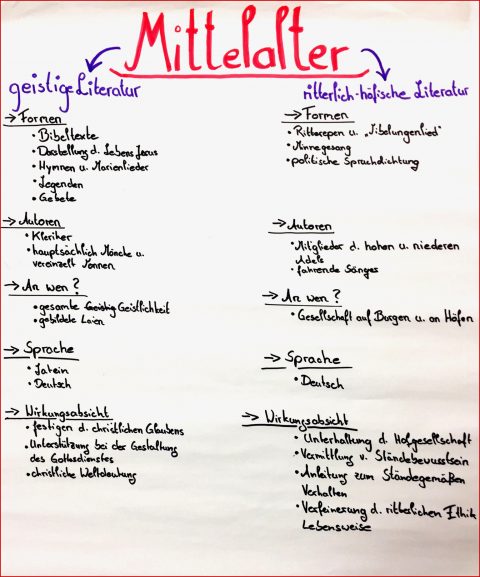 Mittelalter
geistige Literatur
→ Formen
• Bibeltexte
• Darstellung d. Lebens Jesus
• Hymnen u. Marienlieder
• Legenden
• Gebete
→ Autoren
• Kleriker
• hauptsächlich Mönche u.
vereinzelt Nonnen
→ An wen?
• gesamte Geistlichkeit
• gebildete Laien
→ Sprache
• Latein
• Deutsch
→ Wirkungsabsicht
• festigen d. christlichen Glaubens
• Unterstützung bei der Gestaltung
des Gottesdienstes
• christliche Weltdeutung
ritterlich-höfische Literatur
→ Formen
• Ritterepen u. „Nibelungenlied"
• Minnegesang
• politische Spruchdichtung
→ Autoren
• Mitglieder d. hohen u. niederen
Adels
• fahrende Sänger
→ An wen?
• Gesellschaft auf Burgen u. an Höfen
→ Sprache
• Deutsch
→ Wirkungsabsicht
• Unterhaltung d. Hofgesellschaft
• Vermittlung v. Ständebewusstsein
• Anleitung zum Ständegemäßen
Verhalten
• Verfeinerung d. ritterlichen Ethik
Lebensweise